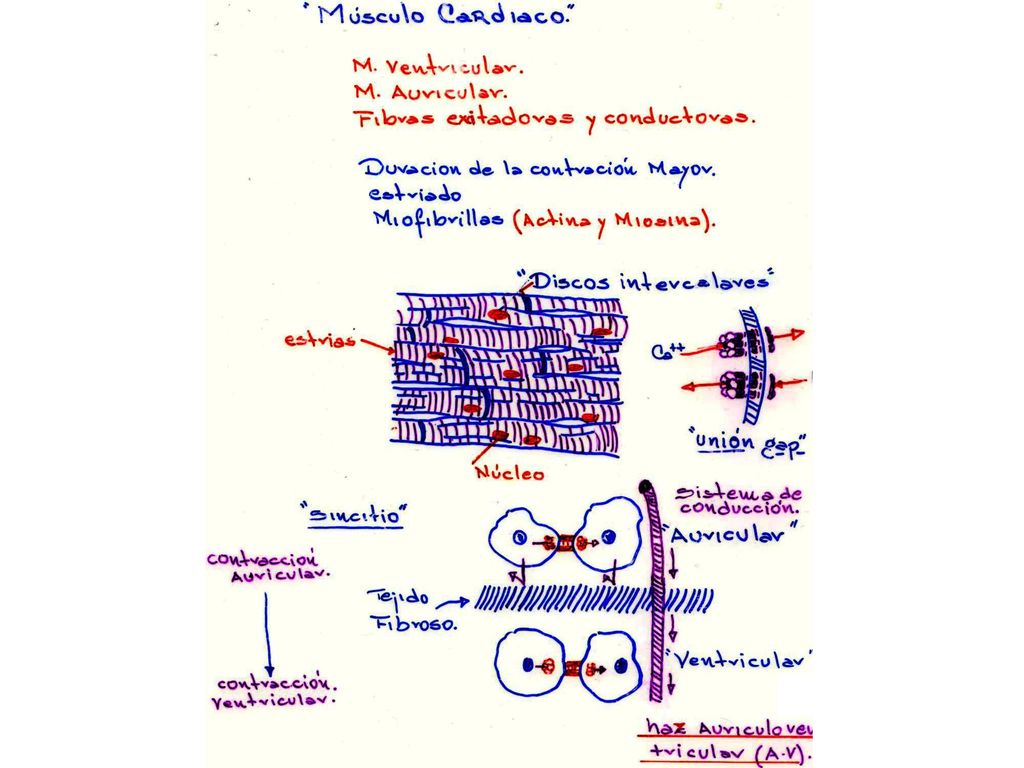 "Músculo Cardiaco."
M. Ventricular.
M. Auricular.
Fibras exitadoras y conductoras.
Duracion de la contración Mayor.
estriado
Miofibrillas (Actina y Miosina).
"Discos intercalares"
estrias
Ca++
"unión gap"
Núcleo
"sincitio"
sistema de
conducción.
"Auricular"
contracción
Auricular.
Tejido
Fibroso.
"Ventricular"
contracción.
Ventricular.
haz Auriculoven
tricular (A-V).